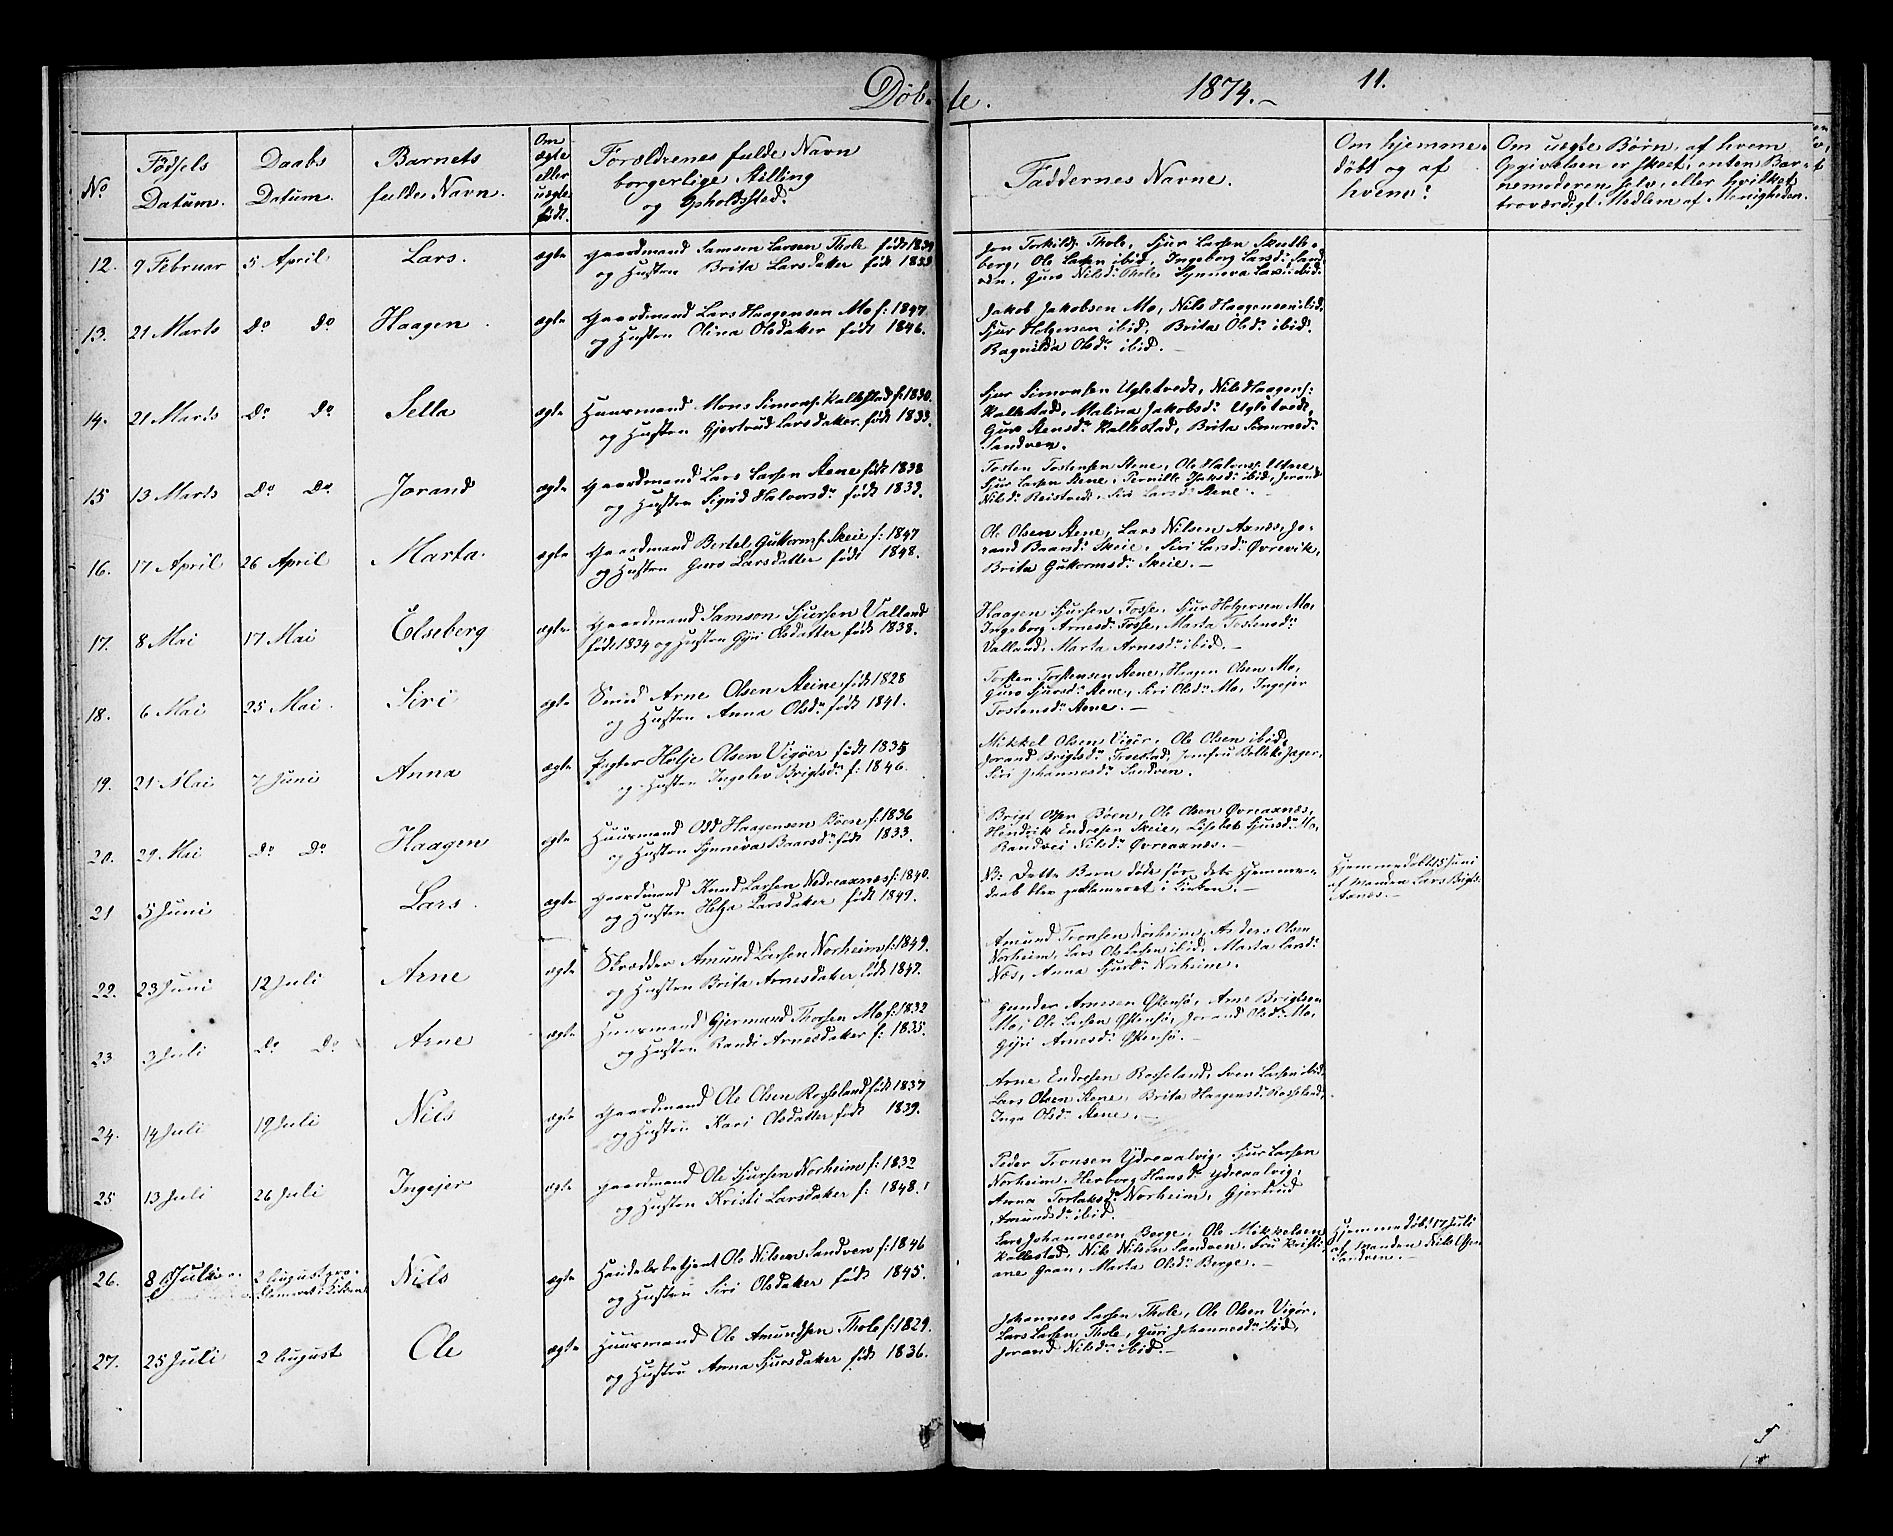 Døbte. 1874.- 11.
No
Fødsels Datum.
Daabs Datum.
Barnets fulde Navn.
Om ægte eller uægte født.
Forældrenes fulde Navn borgerlige Stilling og Opholdssted.
Faddernes Navne.
Om hjemme døbt og af hvem?
Om uægte Børn, af hvem Opgivelsen er skeet, enten Barnemoderen selv, eller hvilket troværdigt Medlem af Menigheden.
12. 9 Februar 5 April Lars. ægte Gaardmand Samson Larsen Thole født 1839
og Hustru Brita Larsdatter født 1833
Jon Torkilds. Thole, Sjur Larsen Skutle-
berg, Ole Larsen ibid, Ingeborg Larsd: Sand
ven, Guro Nilsd: Thole, Synneva Larsd: ibid.
13. 21 Marts Do Do Haagen. ægte Gaardmand Lars Haagensen Mo f: 1847.
og Hustru Olina Olsdatter født 1846.
Jakob Jakobsen Mo, Nils Haagensen ibid,
Sjur Holgersen ibid, Brita Olsd: ibid.
Ragnilda Olsd: ibid.-
14. 21 Marts Do Do Sella ægte Huusmand Mons Simons. Kallestad f: 1830.
og Hustru Gjertrud Larsdatter født 1833.
Sjur Simonsen Ugletvedt, Nils Haagens:
Kallestad, Malina Jakobsd: Ugletvedt,
Guro Stensd: Kallestad, Brita Simonsd:
Sandven.
15 13 Marts Do Do Jorand ægte Gaardmand Lars Larsen Stene født 1838
og Hustru Sigrid Halvorsd: født 1833.
Tosten Tostensen Stene, Ole Halvors: Utne
Sjur Larsen Stene, Pernille Isaksd: ibid, Jorand
Nilsd: Reistvedt, Siri Larsd: Stene.-
16. 17 April 26 April Marta. ægte Gaardmand Bertel Guttorms. Skeie f: 1847
og Hustru Guro Larsdatter født 1848.
Ole Olsen Stene, Lars Nilsen Axnæs, Jo-
rand Baarsd: Skeie, Siri Larsd: Øvrevik,
Brita Guttormsd: Skeie.-
17. 8 Mai 17 Mai Elseberg ægte Gaardmand Samson Sjursen Valland
født 1834 og Hustru Gyri Olsdatter født 1838.
Haagen Sjursen Fosse, Sjur Holgersen Mo,
Ingeborg Arnesd: Fosse, Marta Tostensd:
Valland, Marta Arnesd: ibid.-
18. 6 Mai 25 Mai. Siri ægte Smid Arne Olsen Steine født 1828
og Hustru Anna Olsd: født 1841.
Torsten Torstensen Stene, Haagen Olsen Mo,
Guro Sjursd: Stene, Siri Olsd: Mo, Ingejer
Tostensd: Stene.-
19. 21 Mai 7 Juni Anna ægte Pagter Holje Olsen Vigøer født 1835
og Hustru Ingelev Brigtsd: f: 1846.
Mikkel Olsen Vigør, Ole Olsen ibid,
Jorand Brigtsd: Froestad, Jomfru Bolleke Jæger,
Siri Johannesd: Sandven.
20. 29 Mai Do Do Haagen ægte Huusmand Odd Haagensen Børen f: 1836
og Hustru Synneva Baarsd: født 1833.
Brigt Olsen Børen, Ole Olsen Øvreaxnæs,
Hendrik Endresen Skeie, Lisebet Sjursd: Mo,
Randvei Nilsd: Øvreaxnæs.-
21 5 Juni Lars. ægte Gaardmand Knud Larsen Nedreaxnæs f: 1840.
og Hustru Helga Larsdatter født 1849.
NB: Dette Barn døde før dets Hjemme-
daab blev proklameret i Kirken.-
Hjemmedøbt 5 Juni
af Manden Lars Brigts.
Axnes.-
22. 23 Juni 12 Juli Arne ægte Skrædder Amund Larsen Norheim f: 1849.
og Hustru Brita Arnesdatter født 1847.
Amund Tronsen Norheim, Anders Olsen
Norheim, Lars Ols. Larsen ibid, Marta Larsd:
Næs, Anna Sjursd: Norheim.
23 3 Juli Do Do Arne ægte Huusmand Gjermund Thorsen Mo f: 1832
og Hustru Randi Arnesdatter f: 1835.
Gunder Arnesen Østensø, Arne Brigtsen
Mo, Ole Larsen Østensø, Jorand Olsd: Mo,
Gyri Arnesd: Østensø.-
24. 14 Juli 19 Juli Nils ægte Gaardmand Ole Olsen Rosseland født 1837
og Hustru Kari Olsdatter født 1839.
Arne Endresen Rosseland, Sven Larsen ibid,
Lars Olsen Stene, Brita Haagensd: Rosseland,
Inga Olsd: Stene.-
25 13 Juli 26 Juli Ingejer ægte Gaardmand Ole Sjursen Norheim f: 1832
og Hustru Kristi Larsdatter f: 1848.
Peder Tronsen Ydreaalvig, Sjur Larsen
Norheim, Herborg Hansd: Ydreaalvig,
Anna Torlaksd: Norheim, Gjertrud
Amundsd: ibid.
26. 8 Juli 2 August pro-
klameret i Kirken Nils ægte Handelsbetjent Ole Nilsen Sandven f: 1846
og Hustru Siri Olsdatter født 1845.
Lars Johannesen Berge, Ole Mikkelsen
Kallestad, Nils Nilsen Sandven, Fru Kristi-
ane Gran, Marta Olsd: Berge.-
Hjemmedøbt 17 Juli
af Manden Nils Olsen
Sandven.-
27. 25 Juli 2 August Ole ægte Huusmand Ole Amundsen Thole f: 1829.
og Hustru Anna Sjursdatter født 1836.
Johannes Larsen Thole, Ole Olsen Vigør,
Lars Larsen Thole, Guri Johannesd: ibid,
Jorand Nilsd: ibid.-